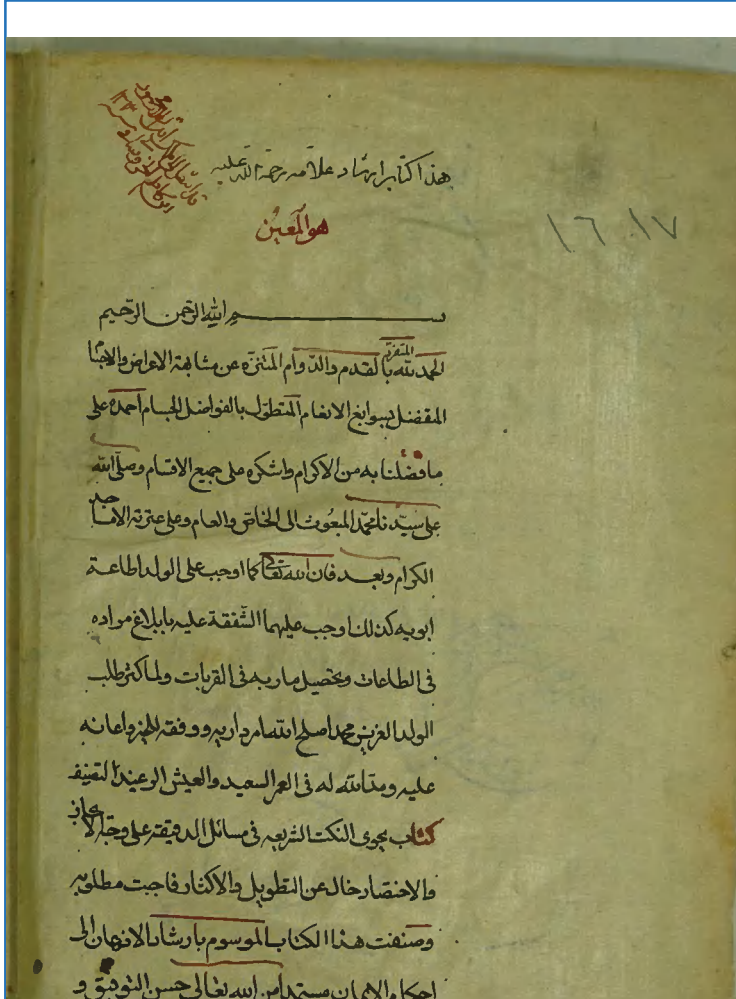 هذا كتاب ارشاد علامه رحمة الله عليه
هو المعين
١٠٦٠١٧
بسم الله الرحمن الرحيم
الحمد لله المتفرد بالقدم والدوام المتنزه عن مشابهة الاعراض والاجسام
المفضل بسوابغ الانعام المتطول بالفواضل الجسام احمده على
ما فضلنا به من الاكرام واشكره على جميع الاقسام وصلى الله
على سيدنا محمد المبعوث الى الخاص والعام وعلى عترته الاماجد
الكرام وبعد فان الله تعالى كما اوجب على الولد اطاعة
ابويه كذلك اوجب عليهما الشفقة عليه بابلاغ مراده
فى الطاعات وتحصيل ماربه فى القربات ولما كثر طلب
الولد العزيز محمد اصلح الله امر داريه ووفقه للخير واعانه
عليه ومد الله له فى العمر السعيد والعيش الرغيد التصنيف
كتاب يحوى النكت فى مسائل الدقيقة على وجه الايجاز
والاختصار خال عن التطويل والاكثار فاجبت مطلوبه
وصنفت هذا الكتاب الموسوم بارشاد الاذهان الى
احكام الايمان مستمدا من الله تعالى حسن التوفيق و